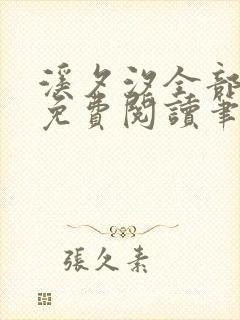 溪夕汐全部
免費閱讀筆
張久素